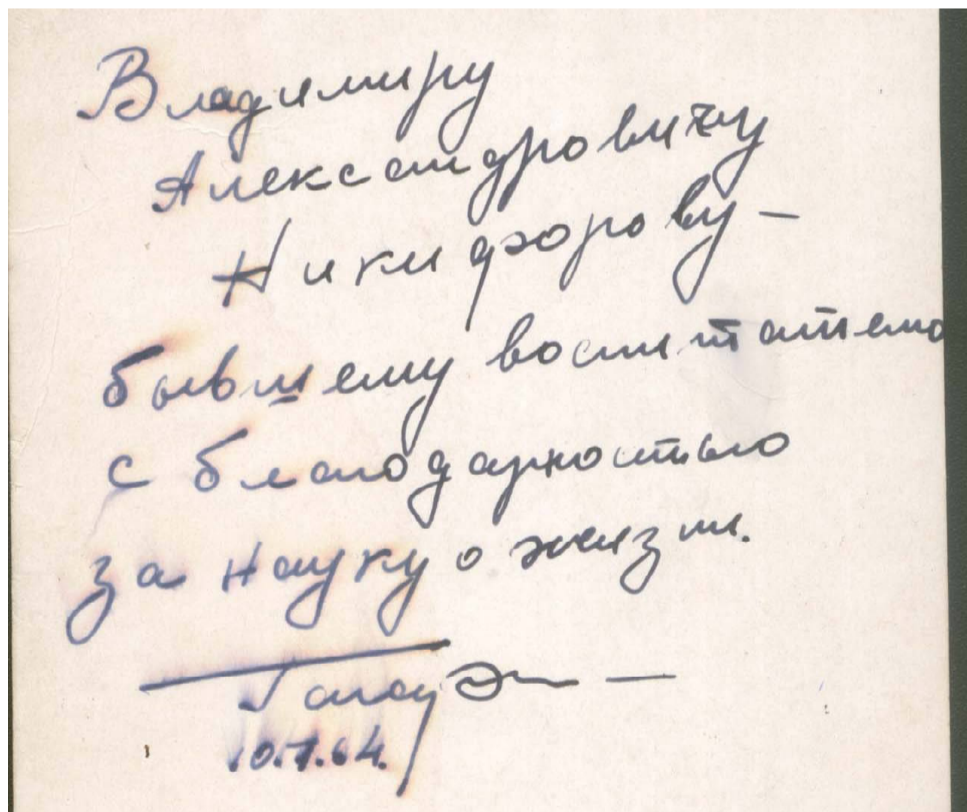 Владимиру
Александровичу
Никифорову –
бывшему воспитателю
с благодарностью
за науку о жизни.
10.1.64.